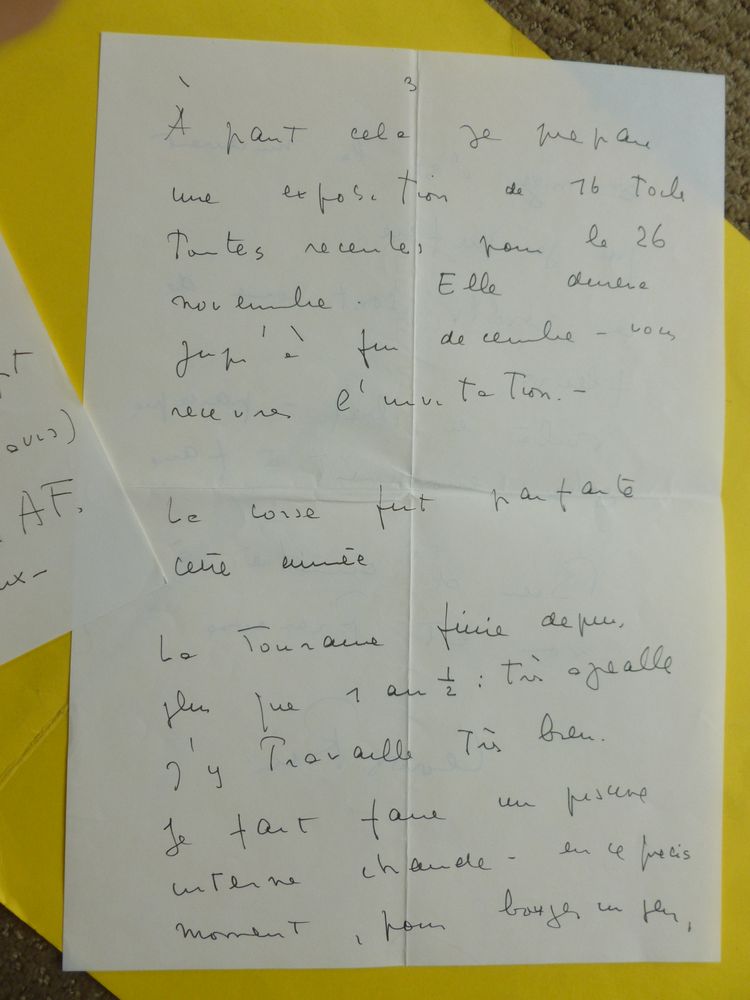 3
À part cela je prepare
une exposition de 16 toiles
toutes recentes pour le 26
novembre. Elle durera
jusqu'à fin decembre - vous
recevres l'invitation. -
La Corse fut parfaite
cette année
La Touraine finie depuis
plus que 1 an 1/2 : très agreable
J'y travaille très bien.
Je fait faire un piscine
interne chaude - en ce précis
moment, pour bouger un peu,
ours)
AF.
ux-